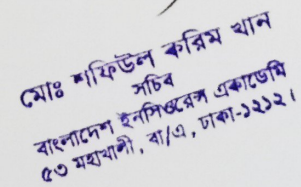 মোঃ শফিউল করিম খান
সচিব
বাংলাদেশ ইনসিওরেন্স একাডেমি
৫৩ মহাখালী, বা/এ, ঢাকা-১২১২।